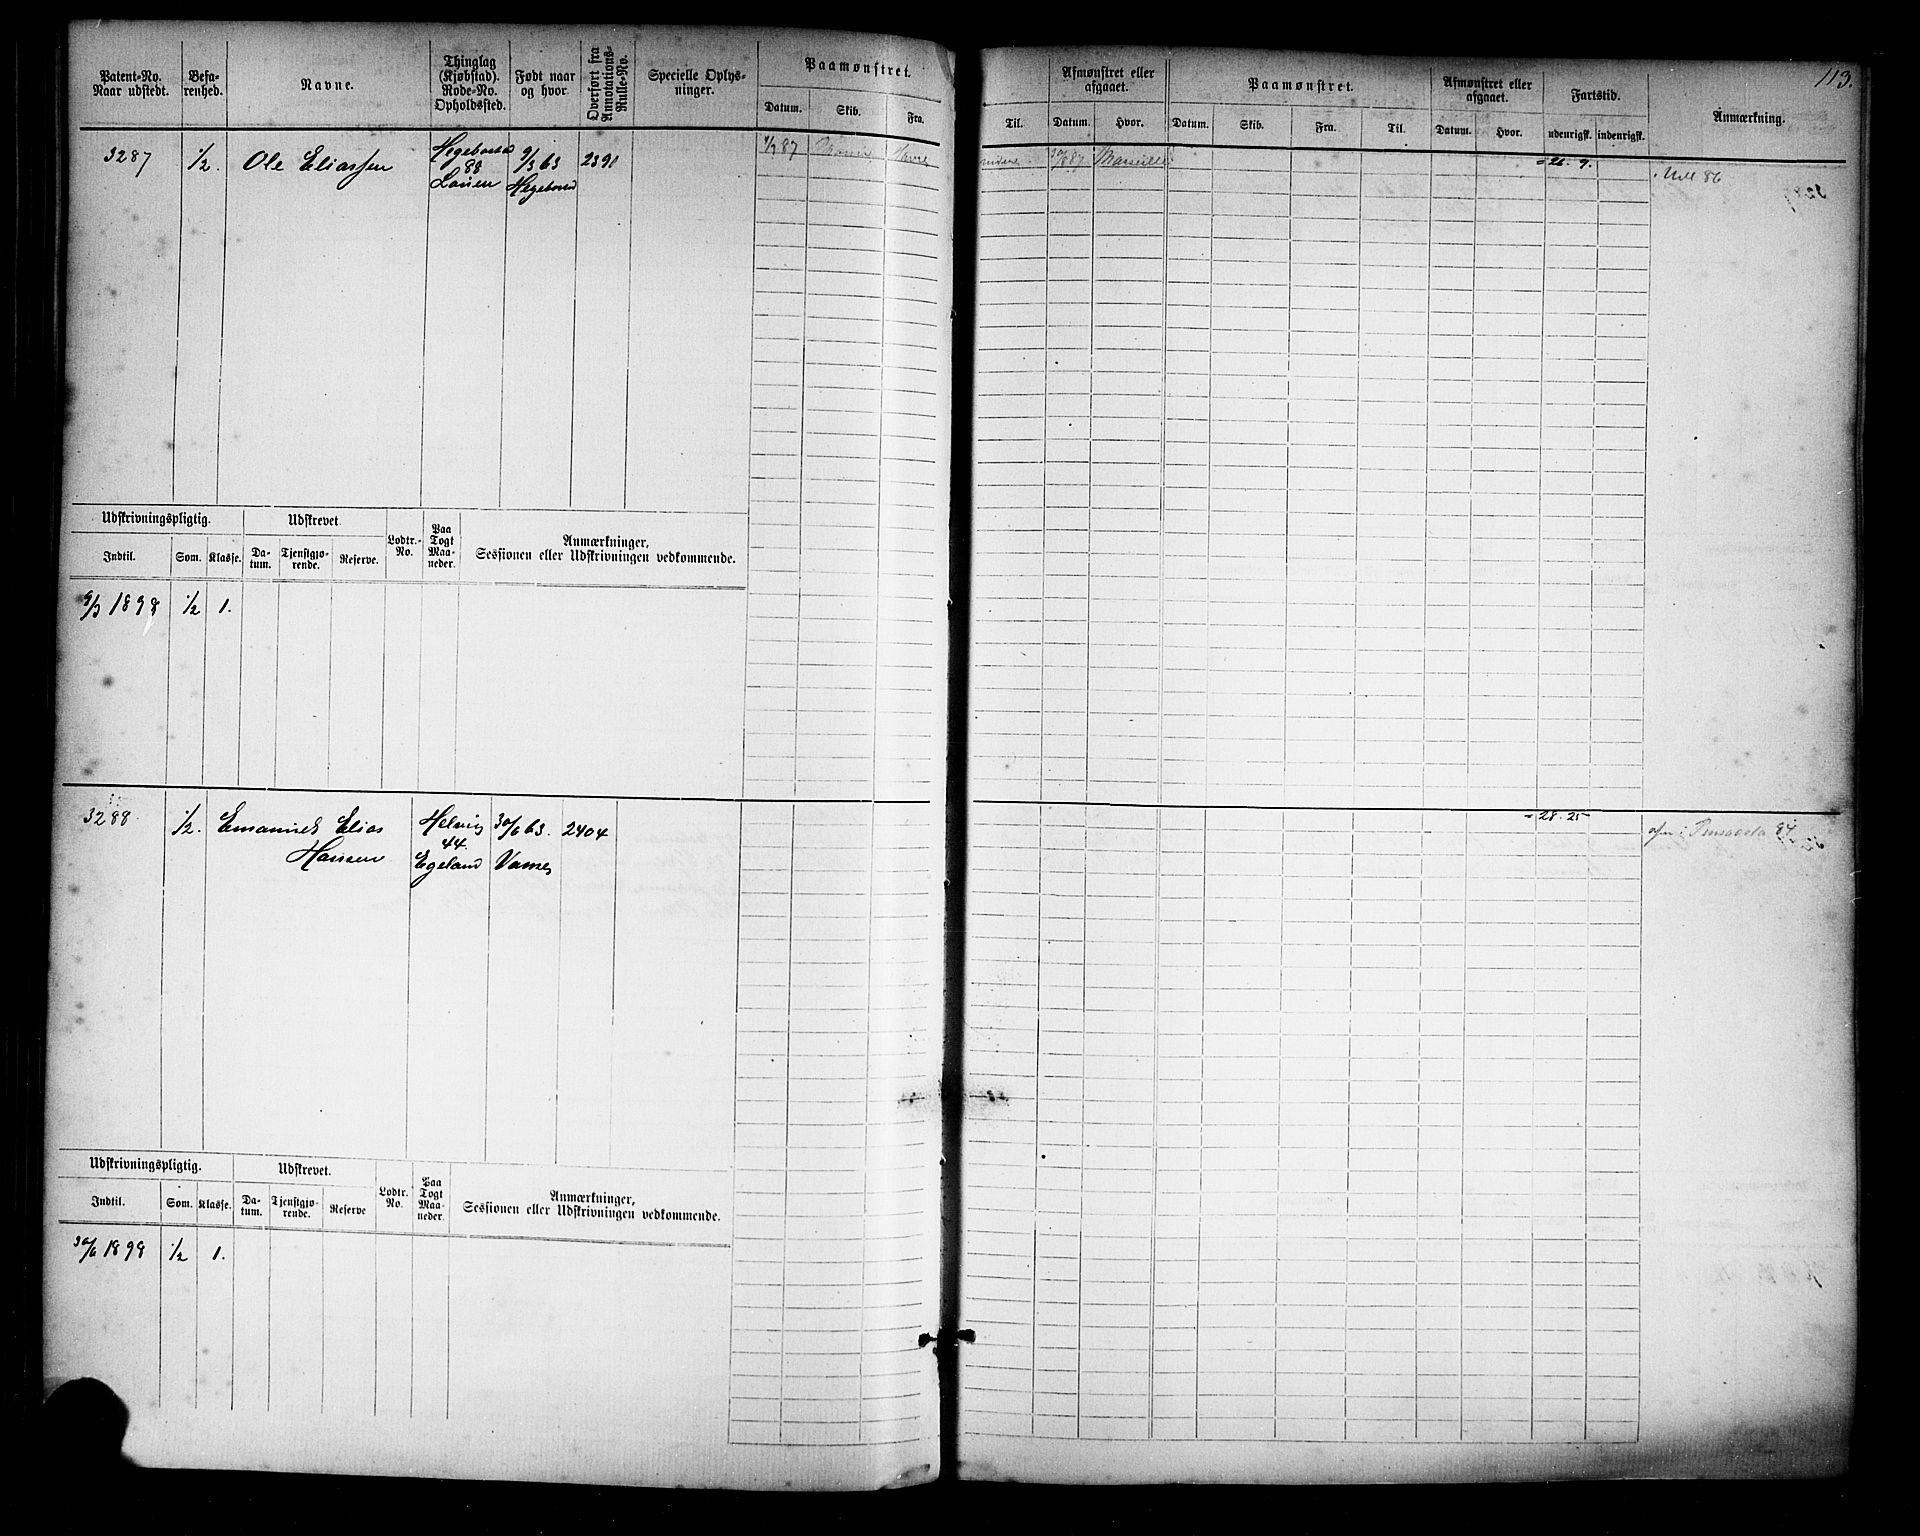 113.
Patent-No. Naar udstedt.
Befarenhed.
Navne.
Thinglag (Kjøbstad). Rode-No. Opholdssted.
Født naar og hvor
Overført fra Annotations-Rulle-No.
Specielle Oplysninger.
Paamønstret.
Datum. Skib. Fra.
Til.
Afmønstret eller afgaaet.
Datum. Hvor.
Paamønstret.
Datum. Skib. Fra. Til.
Afmønstret eller afgaaet.
Datum. Hvor.
Fartstid.
udenrigsk. indenrigsk.
Anmærkning.
3287 1/2. Ole Eliassen Hegebostad 9/3 63 2391
88
Lauen Hegebostad
87 Havre
87 Marseille
26. 9.
86
Udskrivningspligtig. Udskrevet. Lodtr.-No. Paa Togt Maaneder. Anmærkninger, Sessionen eller Udskrivningen vedkommende.
Indtil. Som. Klasse. Datum. Tjenstgjørende. Reserve.
9/3 1898 1/2 1.
3288. 1/2. Emanuel Elias Helvig 30/6 63. 2404
44.
Hansen Egeland Vanse
28. 25
Pensacola 84
Udskrivningspligtig. Udskrevet. Lodtr. No. Paa Togt Maaneder. Anmærkninger, Sessionen eller Udskrivningen vedkommende.
Indtil. Som. Klasse. Datum. Tjenstgjørende. Reserve
30/6 1898 1/2 1.